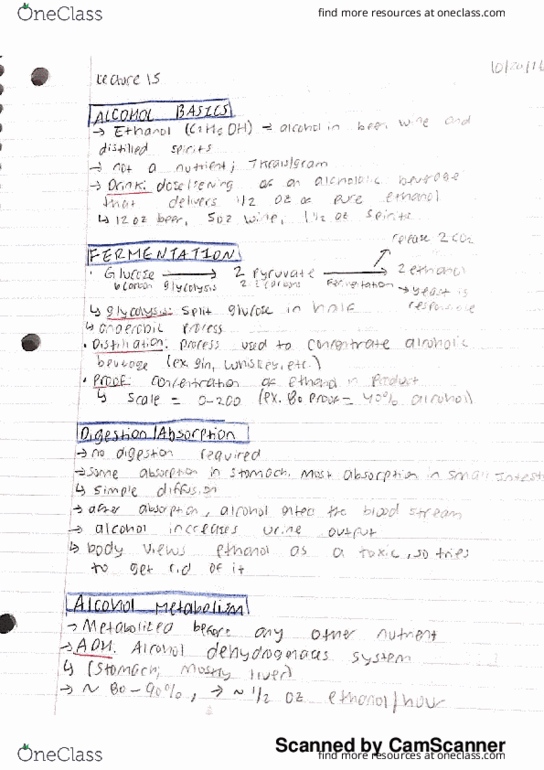 OneClass
find more resources at oneclass.com
10/20/16
Lecture 15
ALCOHOL BASICS
→ Ethanol (C2H5OH) → alcohol in beer, wine and
distilled spirits
→ not a nutrient; 7kcals/gram
→ Drink: of an alcoholic beverage
that delivers 1/2 oz of pure ethanol
↳ 12oz beer, 5oz wine, 1 1/2 oz spirits
release 2CO2
FERMENTATION
· Glucose → 2 Pyruvate → 2 ethanol
6 carbon glycolysis 2 3 carbons Fermentation → yeast is
responsible
↳ glycolysis: split glucose in half
↳ anaerobic process
· Distillation: process used to concentrate alcoholic
beverage (ex. gin, whiskey, etc.)
· Proof: concentration of ethanol in product
↳ scale = 0-200 (ex. 80 proof = 40% alcohol)
Digestion/Absorption
→ no digestion required
→ some absorption in stomach. Most absorption in small intest
↳ simple diffusion
→ after absorption, alcohol enters the blood stream
→ alcohol increases urine output
↳ body views ethanol as a toxic, so tries
to get rid of it
Alcohol Metabolism
→ Metabolized before any other nutrient
→ ADH: Alcohol dehydrogenase system
↳ (stomach; mostly liver)
→ ~ 80-90%, → ~ 1/2 oz ethanol/hour
Scanned by CamScanner
OneClass
find more resources at oneclass.com